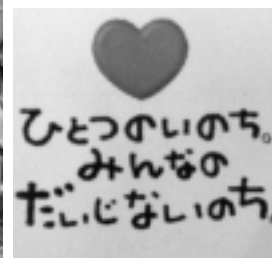 ひとつのいのち。
みんなの
だいじないのち。